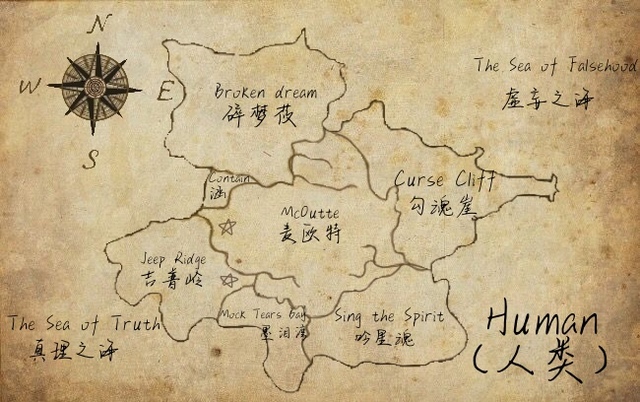 N
W
E
S
Broken dream
碎梦莜
The Sea of Falsehood
虚妄之海
Contain
涵
Curse Cliff
勾魂崖
McOutte
麦欧特
Jeep Ridge
吉普岭
Mock Tears bay
墨泪湾
Sing the Spirit
吟星魂
The Sea of Truth
真理之海
Human
(人类)